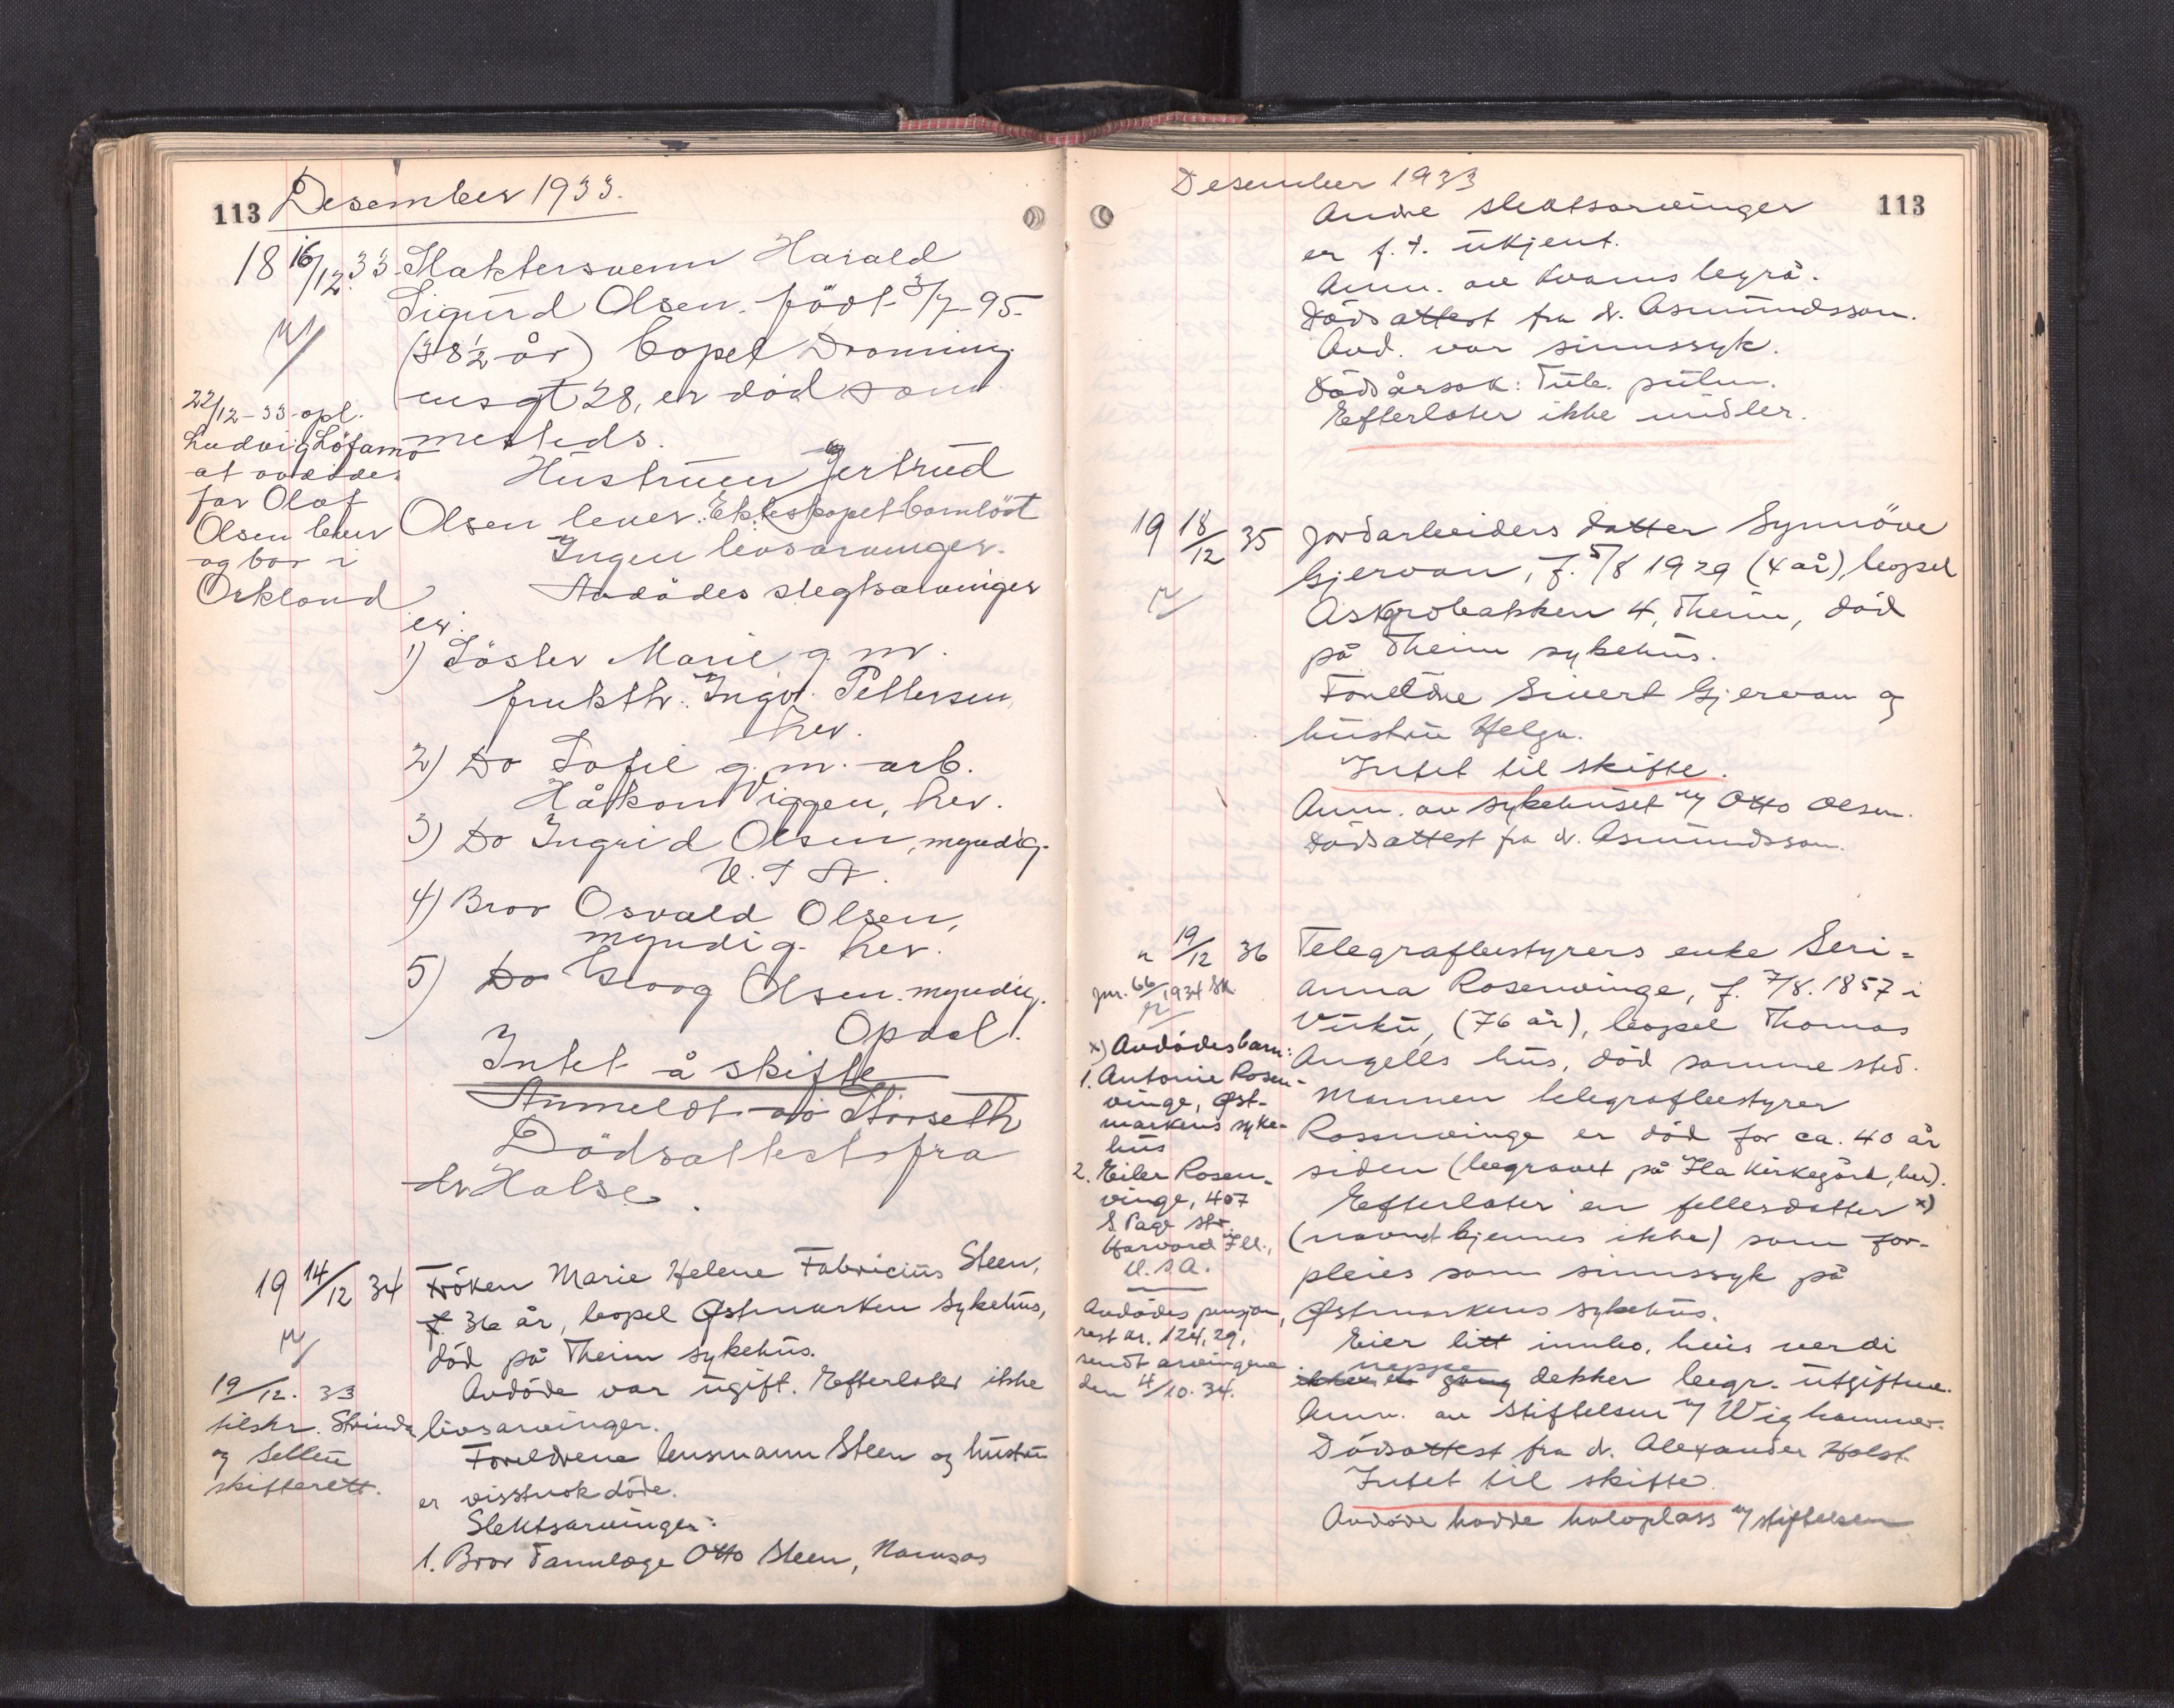 113 Desember 1933.
18 16/12 33 Slaktersvenn Harald
Sigurd Olsen. födt 3/7-95-
(38½ år) bopel Dronning
ensgt 28, er död som
mesteds.
Hustruen Gertrud
Olsen lever. Ekteskapet barnlöst
Ingen livsarvinger.
Avdödes slegtsarvinger
er:
1) Söster Marie g. m.
frukthr. Ingv. Pettersen,
her.
2) Do Sofie g. m. arb.
Håkon Viggen, her.
3) Do Ingrid Olsen, myndig.
U. S A.
4) Bror Osvald Olsen,
myndig. her.
5) Do Georg Olsen. myndig.
Opdal.
Intet å skifte
Anmeldt av Störseth
Dödsattest fra
dr Halse.
22/12-33 opl.
Ludvig Löfamo
at avdödes
far Olaf
Olsen lever
og bor i
Orkland
19 14/12 34 Fröken Marie Helene Fabricius Steen,
f. 36 år, bopel Østmarken Sykehus,
död på Theim sykehus.
Avdöde var ugift. Efterlater ikke
livsarvinger.
Foreldrene lensmann Steen og hustru
er visstnok döde.
Slektsarvinger:
1. Bror Tannlæge Otto Steen, Namsos
19/12. 33
tilskr. Strinda
og Selbu
skifterett.
Desember 1933 113
Andre slektsarvinger
er f. t. ukjent.
Anm. av Kvams begrå.
Dödsattest fra dr. Asmundsson.
Avd. var sinnssyk.
Dödsårsak: Tub. pulm.
Efterlater ikke midler.
19 18/12 35 Jordarbeiders datter Synnöve
Gjervan, f. 5/8 1929 (4 år), bopel
Askgrobakken 4, Theim, död
på Theim sykehus.
Foreldre Sivert Gjervan og
hustru Helga.
Intet til skifte.
Anm. av sykehuset v/ Otto Olsen.
Dödsattest fra dr. Asmundsson.
" 19/12 36 Telegrafbestyrers enke Seri-
anna Rosenvinge, f. 7/8. 1857 i
Vuku, (76 år), bopel Thomas
Angells hus, död samme sted.
Mannen telegrafbestyrer
Rosenvinge er död for ca. 40 år
siden (begravet på Ila Kirkegård, her).
Efterlater en fellesdatter x)
(navnet kjennes ikke) som for-
pleies som sinnssyk på
Østmarkens sykehus.
Eier litt innbo, hvis verdi
neppe dekker begr. utgiftene.
Anm. av Stiftelsen v/ Wighammer.
Dödsattest fra dr. Alexander Holst.
Intet til skifte.
Avdöde hadde halvplass v/ stiftelsen
Jnr. 66/1934 Sk.
x) Avdödes barn:
1. Antonie Rosen-
vinge, Øst-
markens syke-
hus
2. Eiler Rosen-
vinge, 407
S. Page str.
Harvard Ill.,
U. S. A.
Avdödes pensjon,
rest kr. 124,29,
sendt arvingene
den 4/10. 34.